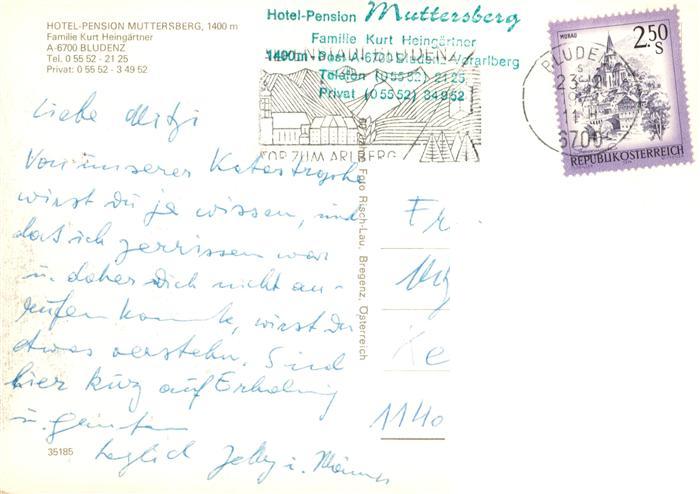 HOTEL-PENSION MUTTERSBERG, 1400 m
Familie Kurt Heingärtner
A-6700 BLUDENZ
Tel. 0 55 52 - 21 25
Privat: 0 55 52 - 3 49 52
Hotel-Pension Muttersberg
Familie Kurt Heingärtner
1400m - Post A-6700 Bludenz Vorarlberg
Telefon (05552) 2125
Privat (05552) 34952
ALPENSTADT BLUDENZ
TOR ZUM ARLBERG
BLUDENZ
6700
MURAU
2.50
S
REPUBLIK ÖSTERREICH
Liebe Mitzi
Von unserer Katastrophe
wirst du ja wissen, und
daß ich zerrissen war
u. daher dich nicht an-
rufen konnte, wirst du
etwas verstehn. Sind
hier kurz auf Erholung
u.
herzlich
Foto Risch-Lau, Bregenz, Österreich
Fr.
1140
35185